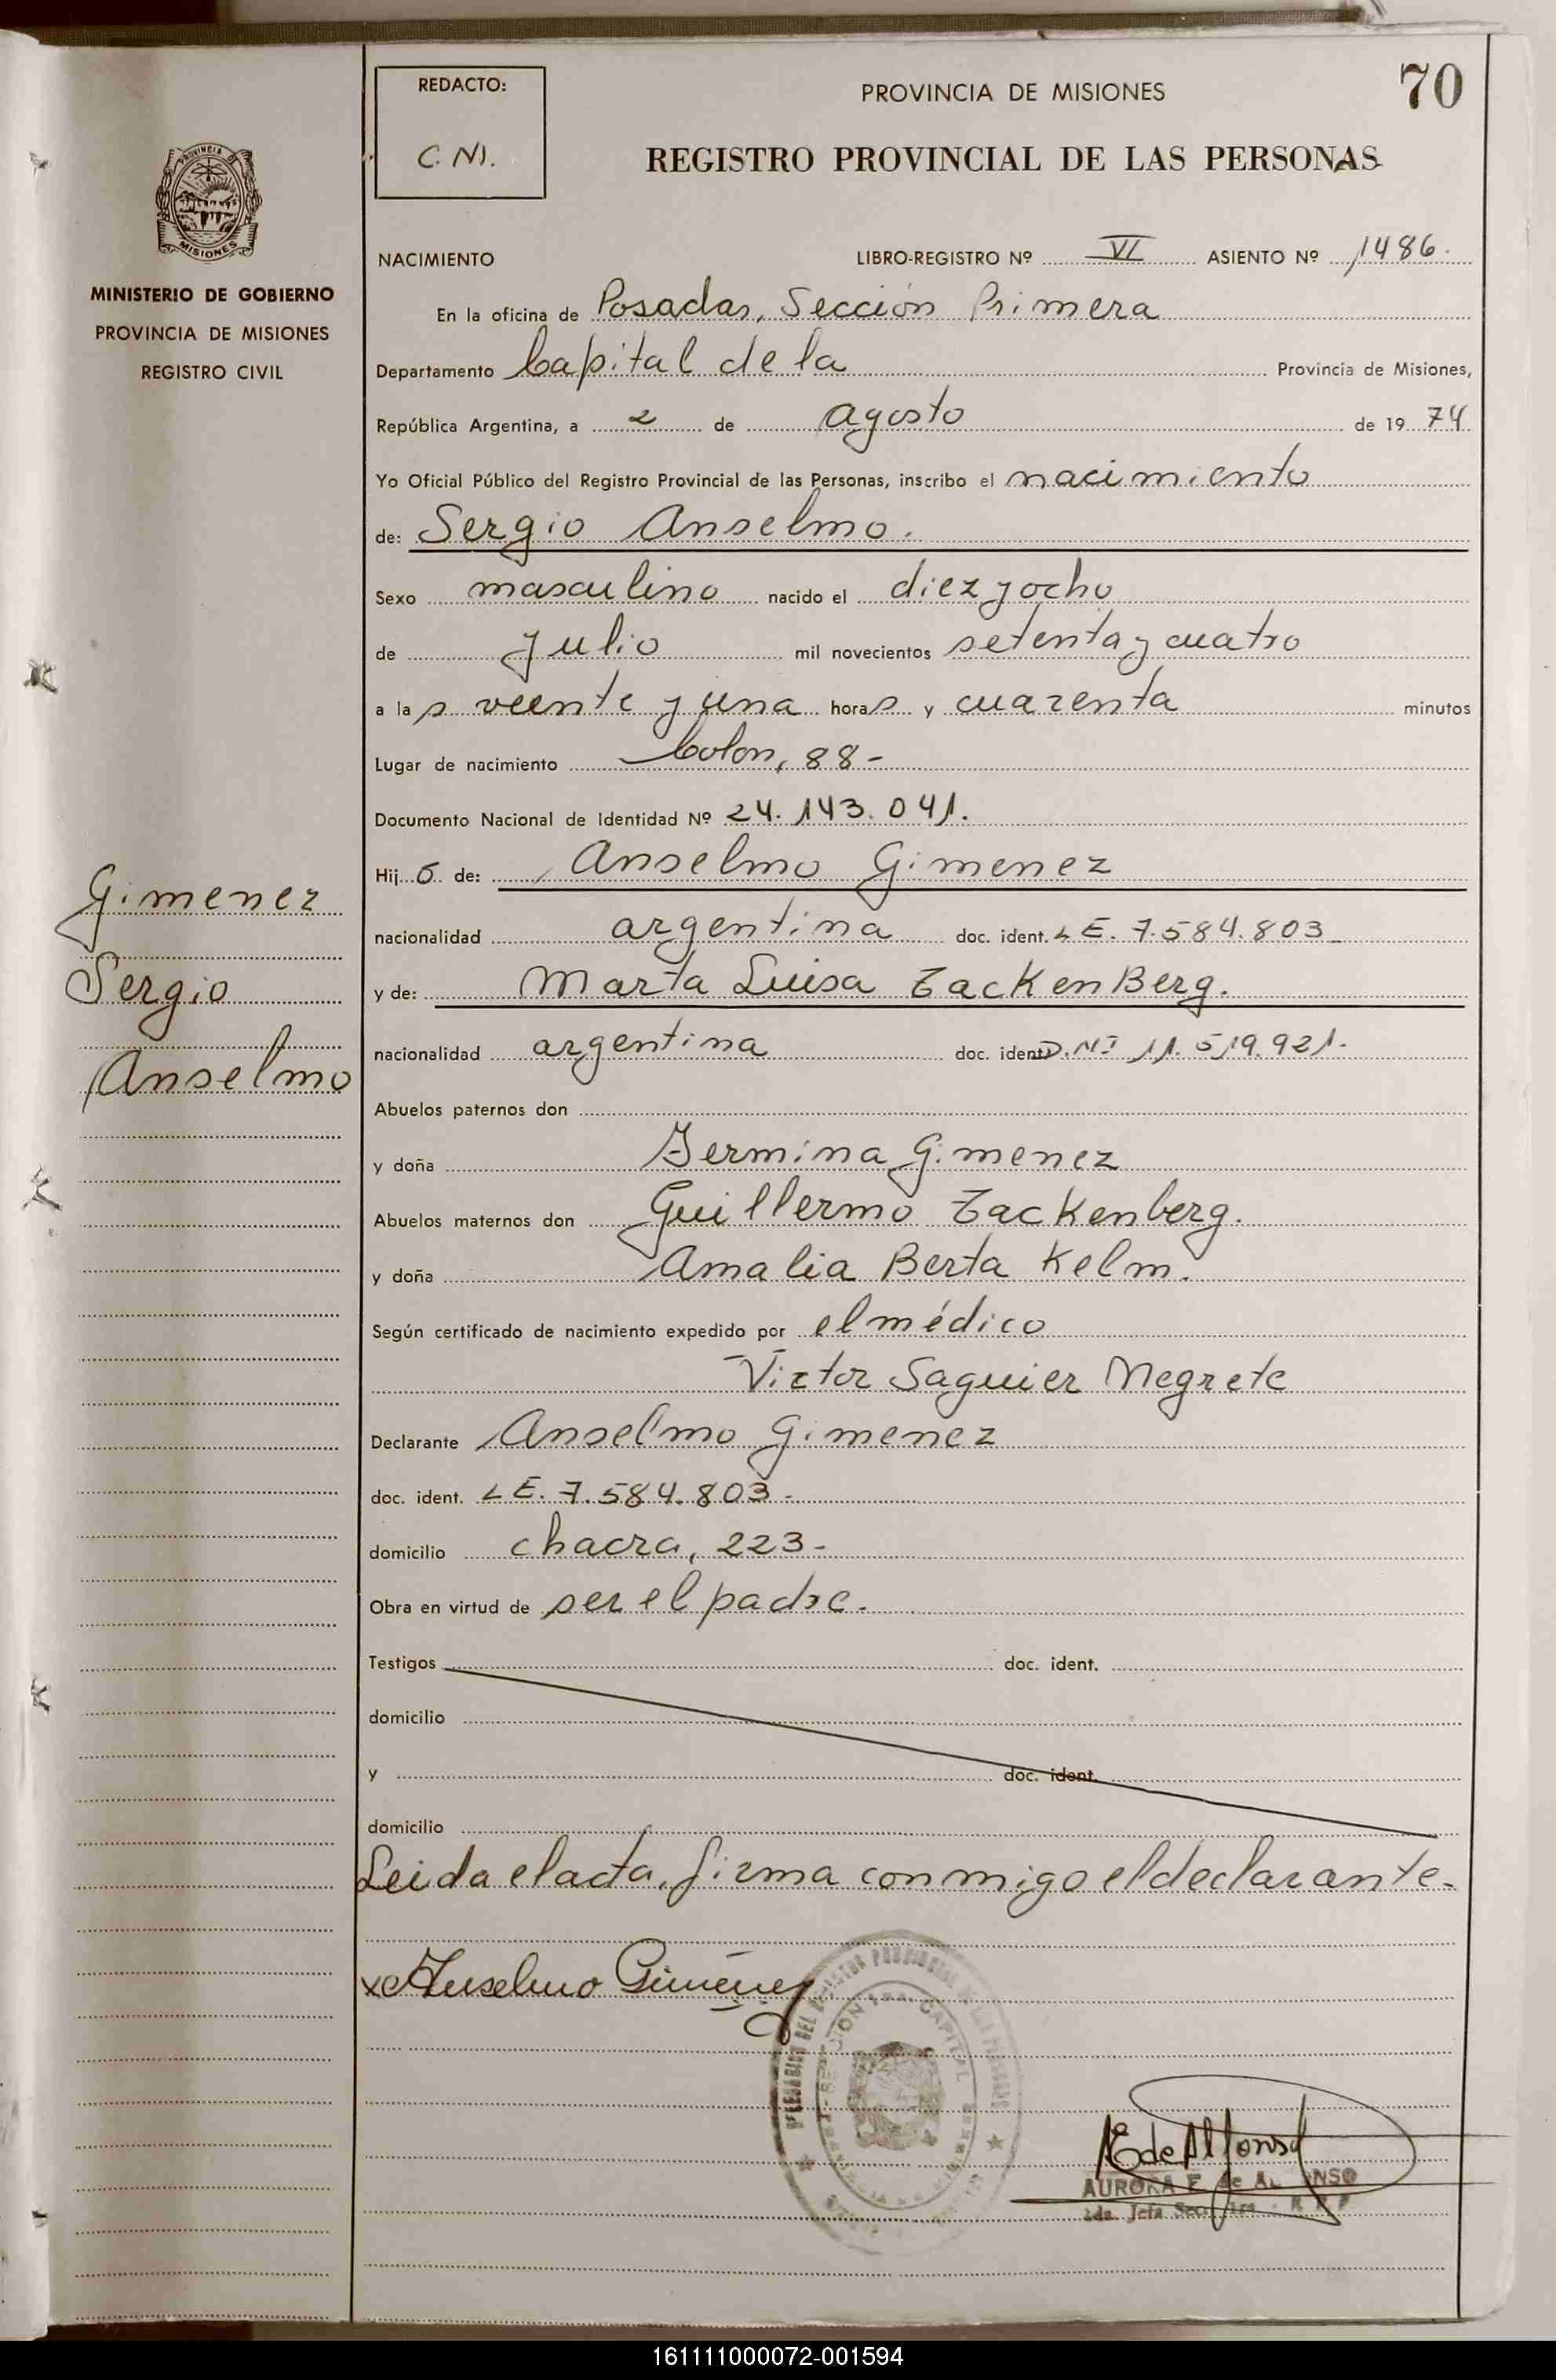 70
REDACTO:
C. N).
PROVINCIA DE MISIONES
REGISTRO PROVINCIAL DE LAS PERSONAS
PROVINCIA DE
MISIONES
MINISTERIO DE GOBIERNO
PROVINCIA DE MISIONES
REGISTRO CIVIL
NACIMIENTO LIBRO-REGISTRO Nº VI ASIENTO Nº 1486.
En la oficina de Posadas, Sección Primera
Departamento Capital de la Provincia de Misiones,
República Argentina, a 2 de agosto de 19 74
Yo Oficial Público del Registro Provincial de las Personas, inscribo el nacimiento
de: Sergio Anselmo.
Sexo masculino nacido el diez y ocho
de Julio mil novecientos setenta y cuatro
a la s veinte y una horas y cuarenta minutos
Lugar de nacimiento Colon, 88-
Documento Nacional de Identidad Nº 24.143.041.
Hij o de: Anselmo Gimenez
nacionalidad argentina doc. ident. LE. 7.584.803
y de: Marta Luisa Zackenberg.
nacionalidad argentina doc. ident. D.NI 11.519.921.
Abuelos paternos don
y doña Germina Gimenez
Abuelos maternos don Guillermo Zackenberg.
y doña Amalia Berta Kelm.
Según certificado de nacimiento expedido por el médico
Victor Saguier Negrete
Declarante Anselmo Gimenez
doc. ident. LE. 7.584.803-
domicilio chacra, 223-
Obra en virtud de ser el padre.
Testigos doc. ident.
domicilio
y doc. ident.
domicilio
Leida el acta, firma conmigo el declarante.
Gimenez
Sergio
Anselmo
x Anselmo Gimenez
SECCION 1ra CAPITAL
E de Alfonso
AURORA E. de AL NSO
2da. Jefa Secc. 1ra. - R. P. P
161111000072-001594